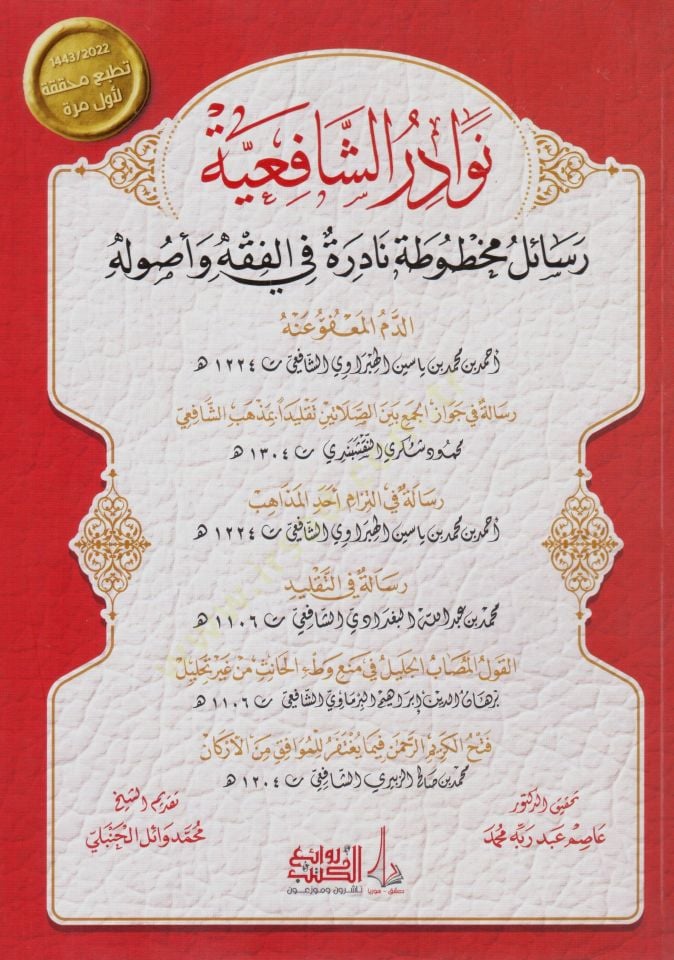 1443/2022
تطبع محققة
لأول مرة
نَوَادِرُ الشَّافِعِيَّة
رَسَائِلُ مَخْطُوطَة نَادِرَةٌ فِي الفِقْهِ وَأصُولِهِ
الدَّمُ المَعْفُوُّ عَنْهُ
أحمد بن محمد بن ياسين الهبراوي الشافعي ت ١٢٢٤ هـ
رسالةٌ في جواز الجمع بَيْنَ الصَّلاتين تقليدًا بمذهب الشَّافعيّ
محمود شكري النقشبندي ت ١٣٠٤ هـ
رسالةٌ في التزام أحد المذاهب
أحمد بن محمد بن ياسين الهبراوي الشافعي ت ١٢٢٤ هـ
رسالةٌ في التَّقليد
محمد بن عبد الله البغدادي الشافعي ت ١١٠٦ هـ
القول المُصاب الجليل في منع وطء الحانث من غير تحليل
برهان الدين إبراهيم البرماوي الشافعي ت ١١٠٦ هـ
فتح الكريم الرحمن فيما يُغتفر للموافق من الأركان
محمد بن صالح الزبيري الشافعي ت ١٢٠٤ هـ
تحقيق الدكتور
عاصم عبد ربه محمد
تقديم الشيخ
محمد وائل الحنبلي
دار
روائع
الكتب
دمشق - سوريا
ناشرون وموزعون